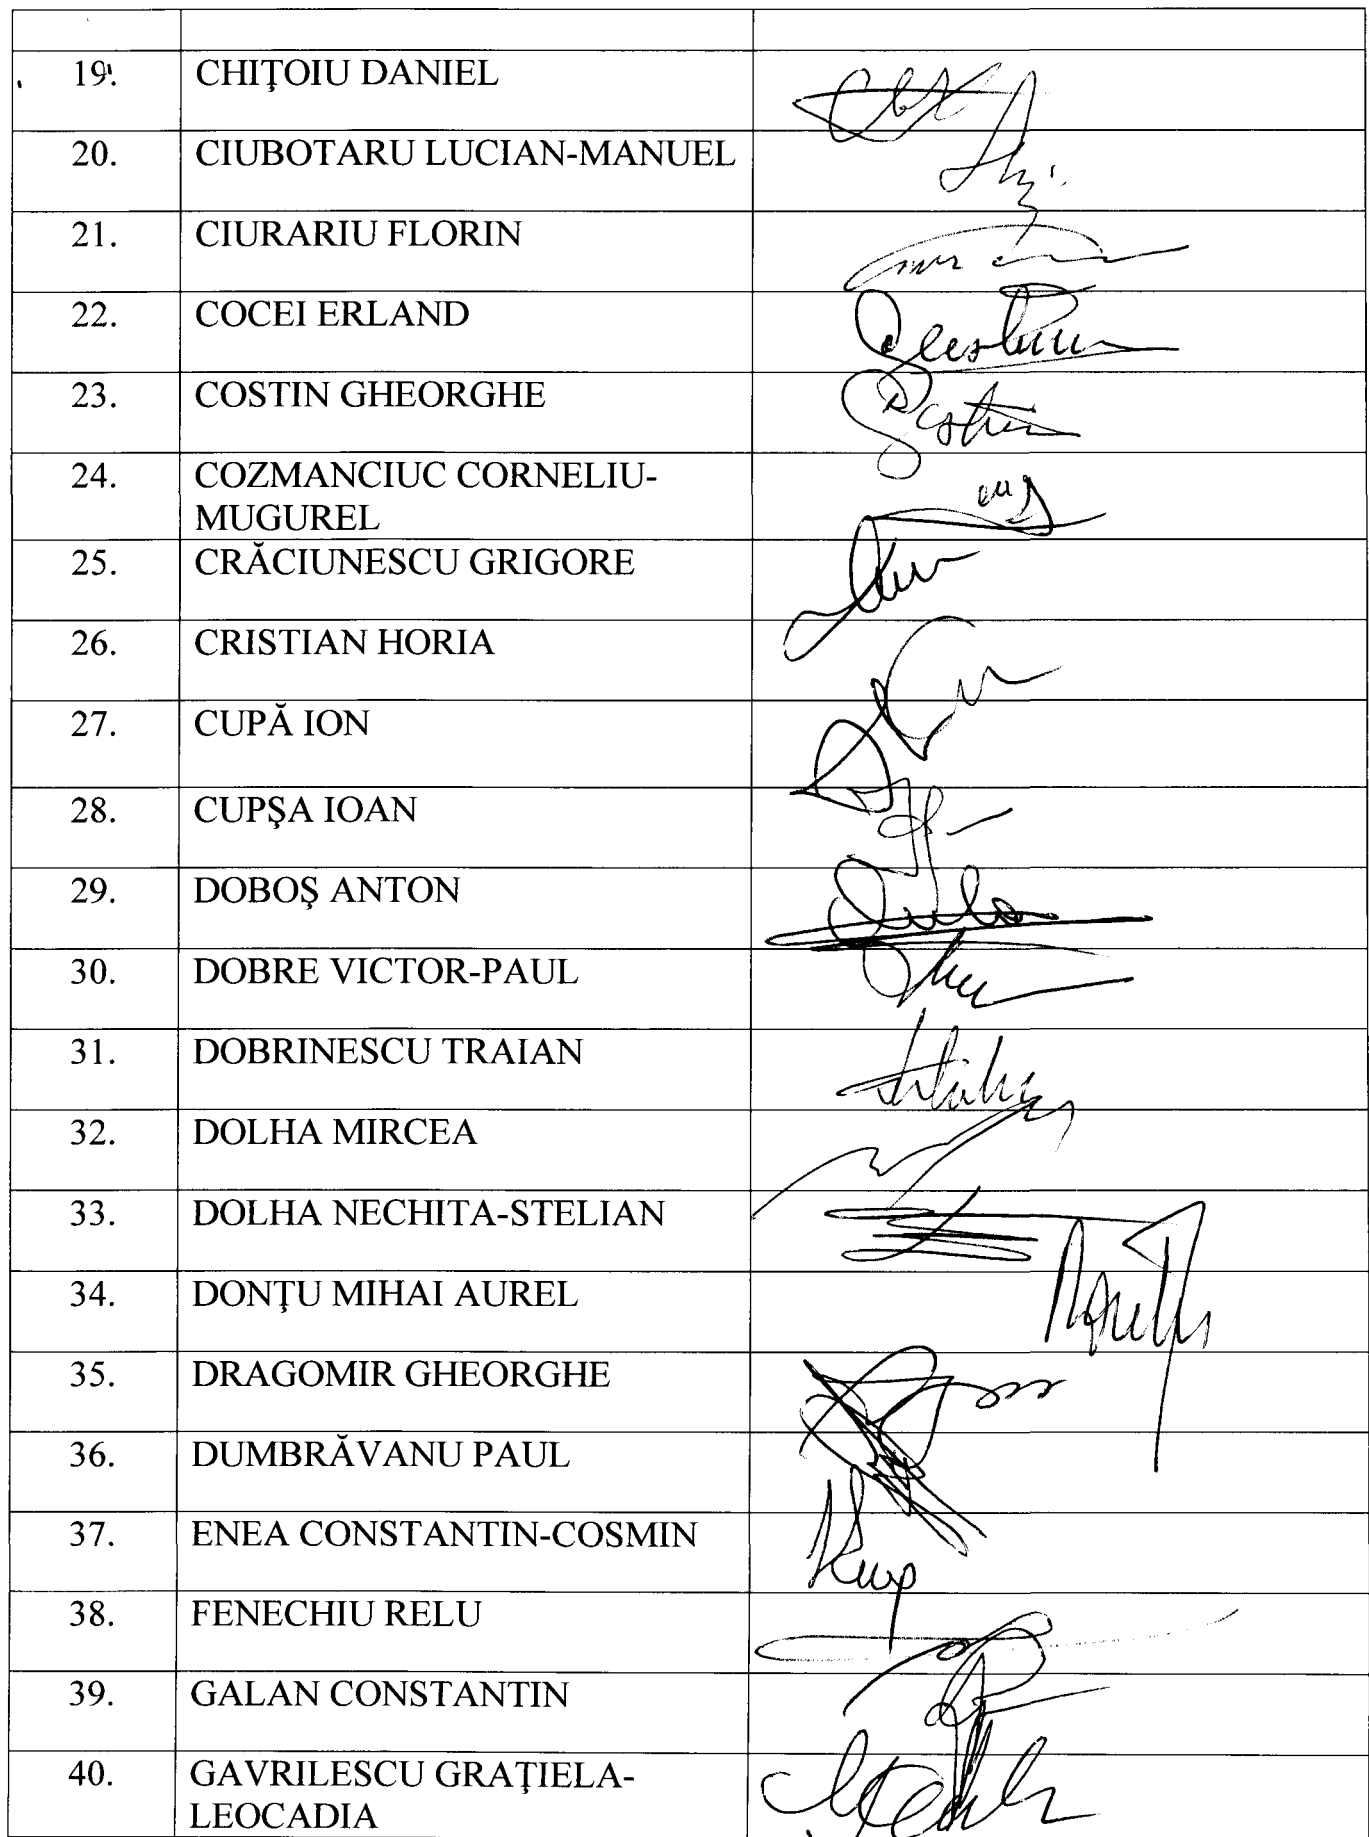 19. CHIŢOIU DANIEL
20. CIUBOTARU LUCIAN-MANUEL
21. CIURARIU FLORIN
22. COCEI ERLAND
23. COSTIN GHEORGHE
24. COZMANCIUC CORNELIU-
MUGUREL
25. CRĂCIUNESCU GRIGORE
26. CRISTIAN HORIA
27. CUPĂ ION
28. CUPŞA IOAN
29. DOBOŞ ANTON
30. DOBRE VICTOR-PAUL
31. DOBRINESCU TRAIAN
32. DOLHA MIRCEA
33. DOLHA NECHITA-STELIAN
34. DONŢU MIHAI AUREL
35. DRAGOMIR GHEORGHE
36. DUMBRĂVANU PAUL
37. ENEA CONSTANTIN-COSMIN
38. FENECHIU RELU
39. GALAN CONSTANTIN
40. GAVRILESCU GRAŢIELA-
LEOCADIA